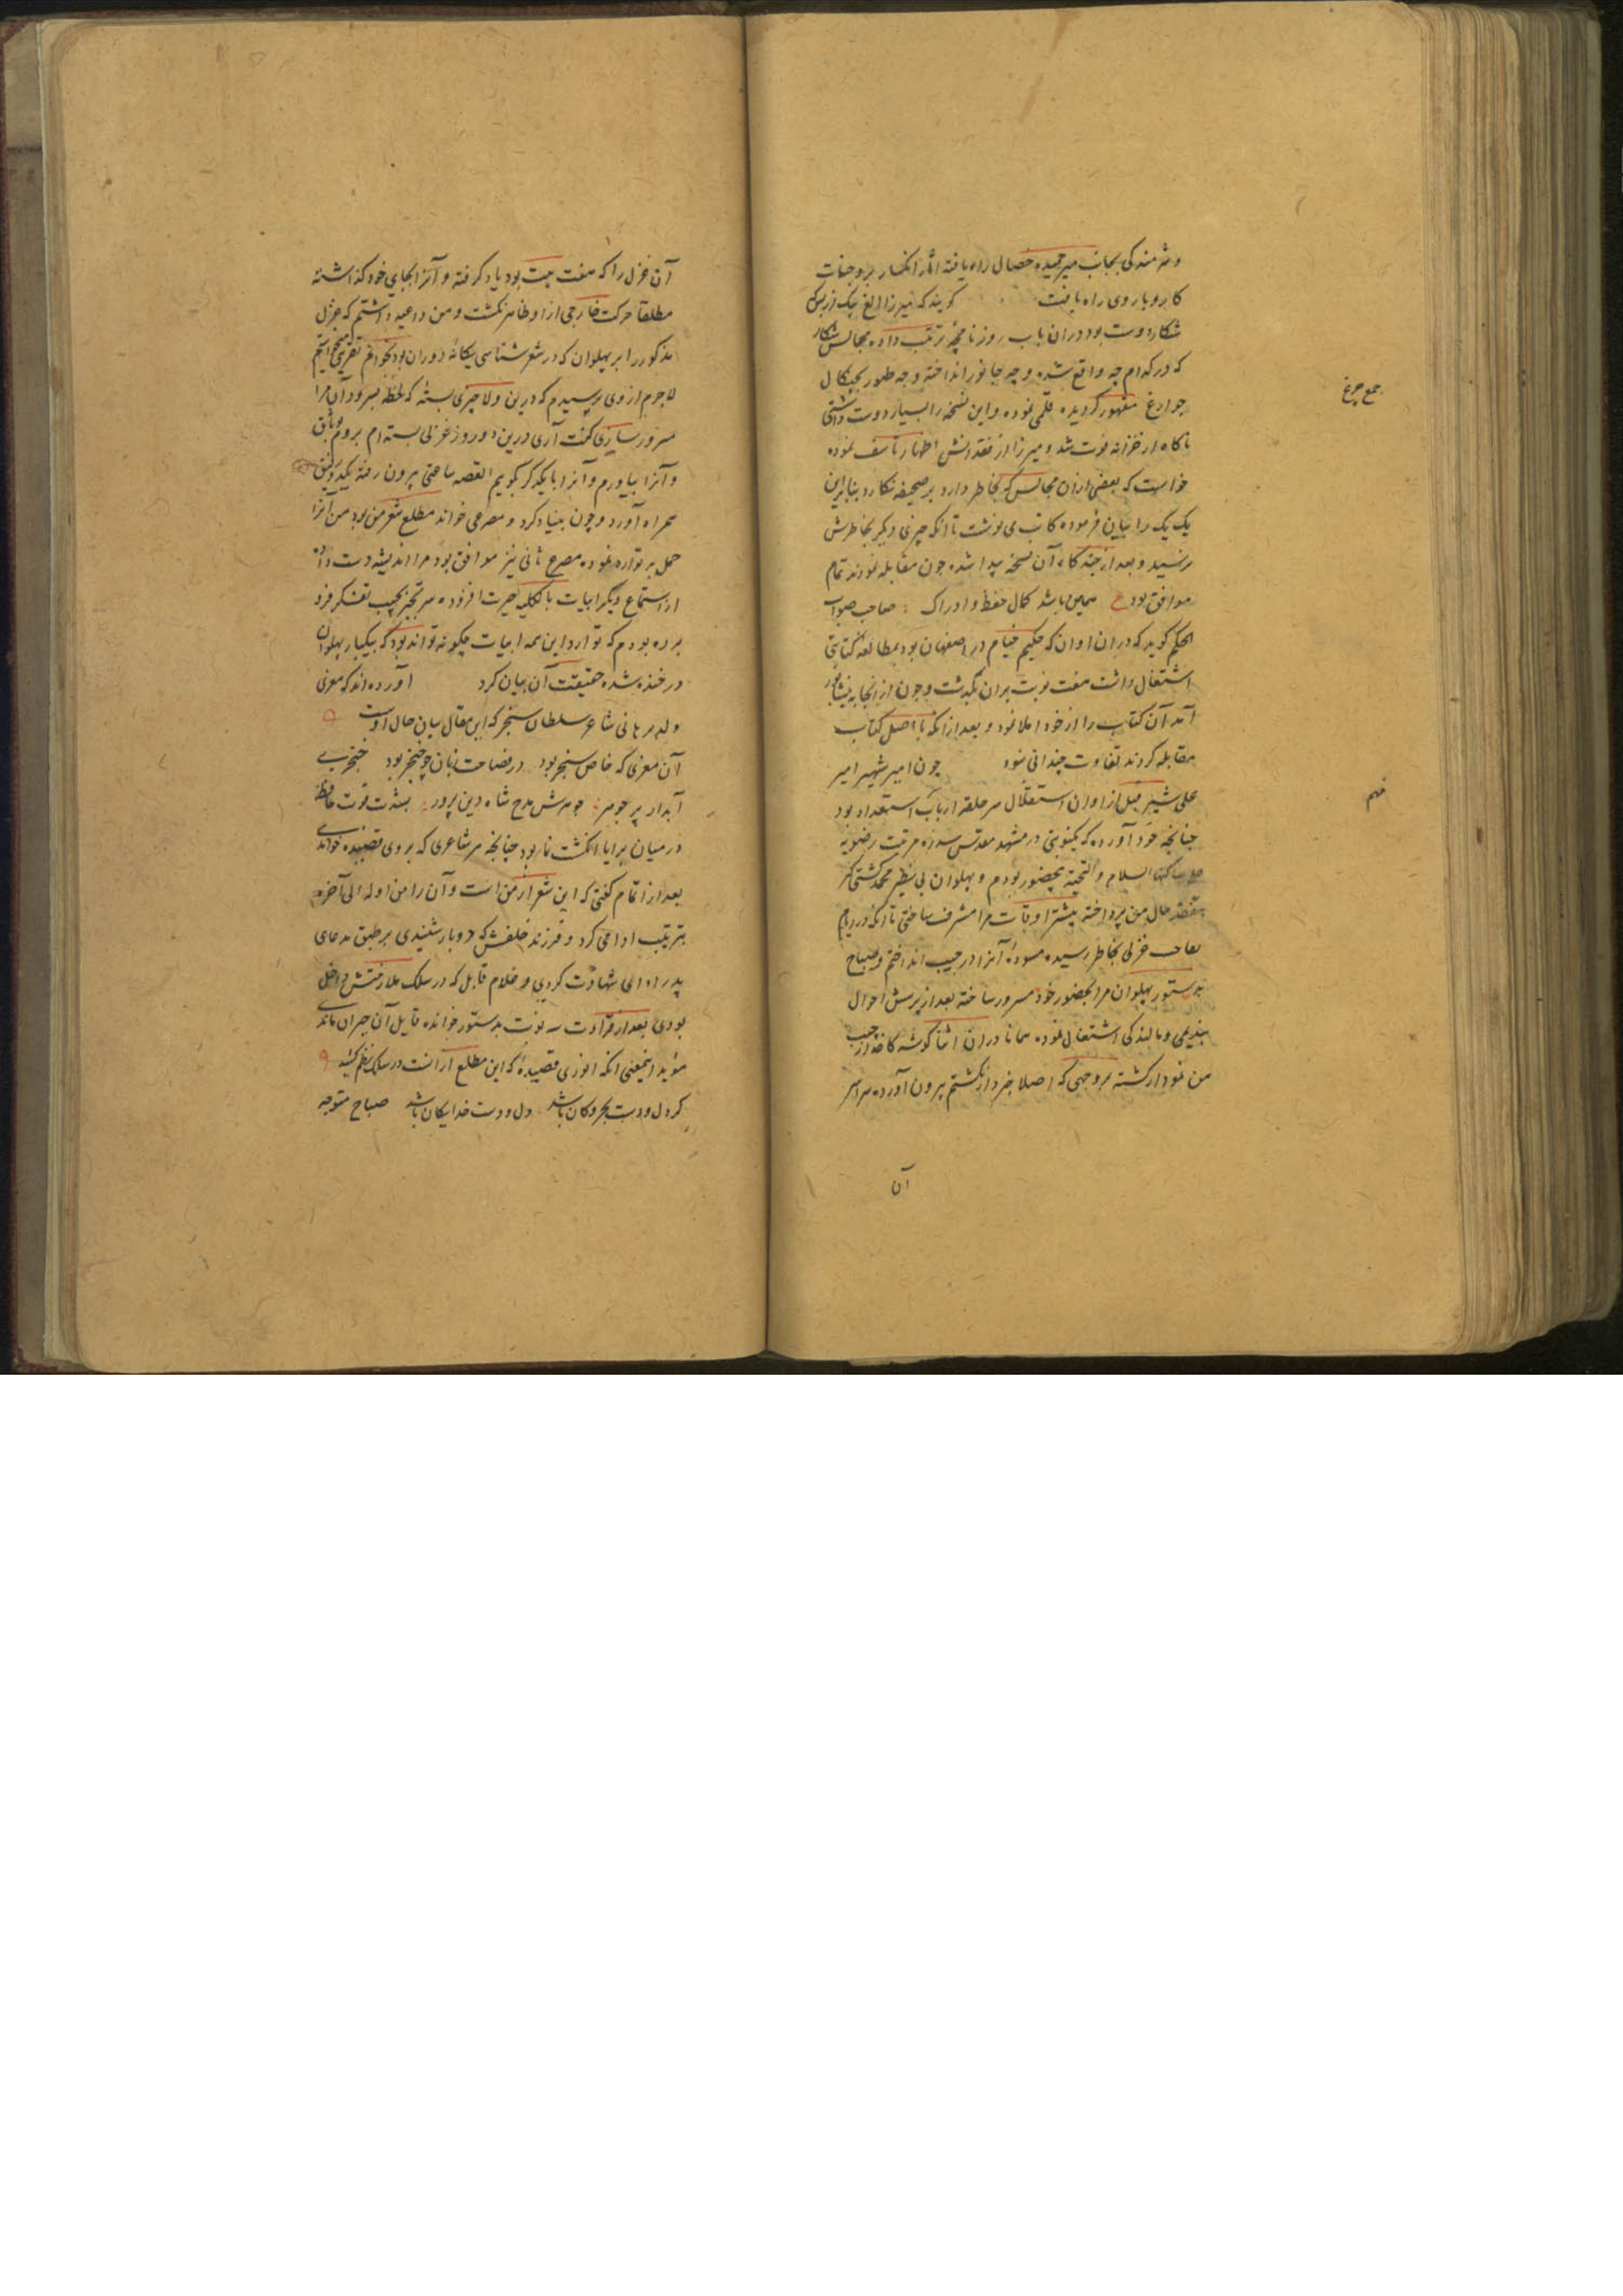 و شرمندگی بجانب میر حمیده خصال راه یافته آثار انکسار بر وجنات
کاروبار وی راه یافت گویند که میرزا الغ بیک از بس
شکار دوست بود دران باب روزنامچه ترتیب داده مجالس شکار
که در کدام چه واقع شده و چه جانور انداخته و چه طیور بچنگال
جوارغ مقهور گردیده قلمی نموده و این نسخه را بسیار دوست داشتی
جمع چرغ
ناگاه از خزانه فوت شد و میرزا از فقدانش اظهار تاسف نموده
خواست که بعضی ازان مجالس که بخاطر دارد بر صحیفه نگارد بنابراین
یک یک را بیان فرموده کاتب می نوشت تا آنکه چیزی دیگر بخاطرش
نرسید و بعد از چند گاه آن نسخه پیدا شده چون مقابله نمودند تمام
موافق بود ع همین باشد کمال حفظ و ادراک صاحب صواب
الحکم گوید که دران اوان که حکیم خیام در اصفهان بود بمطالعه کتابی
اشتغال داشت هفت نوبت بران بگذشت و چون ازانجا به نیشاپور
آمد آن کتاب را از خود املا نمود و بعد ازانکه با اصل کتاب
مقابله کردند تفاوت چندانی نبود چون امیر شهیر امیر
فهم
علی شیر قبل از اوان استقلال سر حلقه ارباب استعداد بود
چنانچه خود آورده که نوبتی در مشهد مقدس سدره مرتبت رضویه
علی ساکنها السلام والتحیة بحضور بودم و پهلوان بی نظیر محمد کشتی گیر
بتفقد حال من پرداخته بیشتر اوقات مرا مشرف ساختی تا آنکه در ایام
مصاحب غزلی بخاطر رسیده مسوده آنرا در جیب انداختم و صباح
بدستور پهلوان مرا بحضور خود مسرور ساخته بعد از پرسش احوال
بندیمی و مالندگی اشتغال نموده همانا دران اثنا گوشه کاغذ از جیب
من نمودار گشته بروجهی که اصلا خبردار نگشتم بیرون آورده سراسر
آن
آن غزل را که هفت بیت بود یاد گرفته و آنرا بجای خود گذاشته
مطلقا حرکت خارجی ازو ظاهر نگشت و من داعیه داشتم که غزل
مذکور را بر پهلوان که در شعر شناسی یگانه دوران بود بخوانم تقریبی میخواستم
لاجرم از وی پرسیدم که درین ولا چیزی بسته که لحظه بسرود آن مرا
مسرور سازی گفت آری درین دو روز غزلی بسته ام بروم وثاق
و آنرا بیاورم و آنرا با یکدیگر بگویم القصه ساعتی بیرون رفته یکدو رفیق
همراه آورد و چون بنیاد کرد و مصرعی خواند مطلع شعر من بود من آنرا
حمل بر توارد نموده مصرع ثانی نیز موافق بود مرا اندیشه دست داد
از استماع دیگر ابیات بالکلیه حیرت افزوده سر تحیر بجیب تفکر فرو
برده بودم که توارد این همه ابیات چگونه تواند بود که بیکبار پهلوان
در خنده شده حقیقت آن بیان کرد آورده اند که معزی
ولد برهانی شاعر سلطان سنجر که این مقال بیان حال اوست
آن معزی که خاص سنجر بود در فصاحت زبان چو خنجر بود خنجری
آبدار پر جوهر جوهرش مدح شاه دین پرور بشدت قوت حافظه
در میان برایا انگشت نما بود چنانچه هر شاعری که بروی قصیده خواندی
بعد از اتمام گفتی که این شعر از من است و آن را من اوله الی آخره
بترتیب ادا می کرد و فرزند خلفش که دوبار شنیدی بر طبق مدعای
پدر ادای شهادت کردی و غلام قابل که در سلک ملازمتش داخل
بودی بعد از قرائت سه نوبت بدستور خوانده قایل آن حیران ماندی
مؤید اینمعنی آنکه انوری قصیده که این مطلع ازانست در سلک نظم کشید
گر دل و دست بحر و کان باشد دل و دست خدایگان باشد صباح متوجه